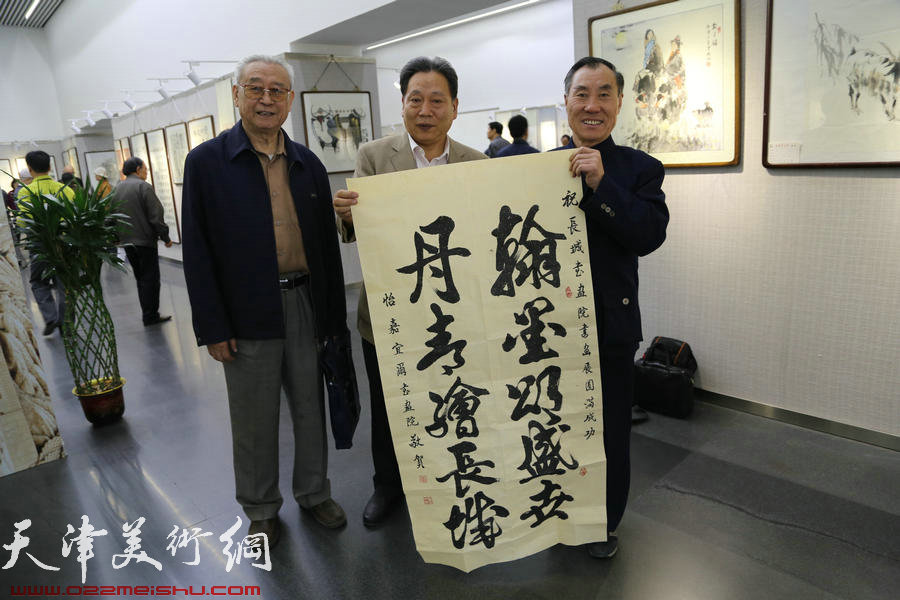 祝長城書画院書畫展圓满成功
翰墨頌盛世
丹青繪長城
怡嘉宜爾書画院敬贺
天津美術網
www.022meishu.com